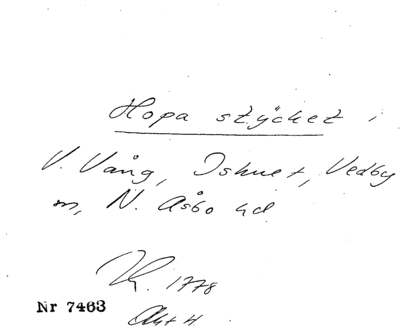 Hopa stycket i
V. Vång, Ishuet, Vedby
m, N. Åsbo hd
1778
Nr 7463
Akt H